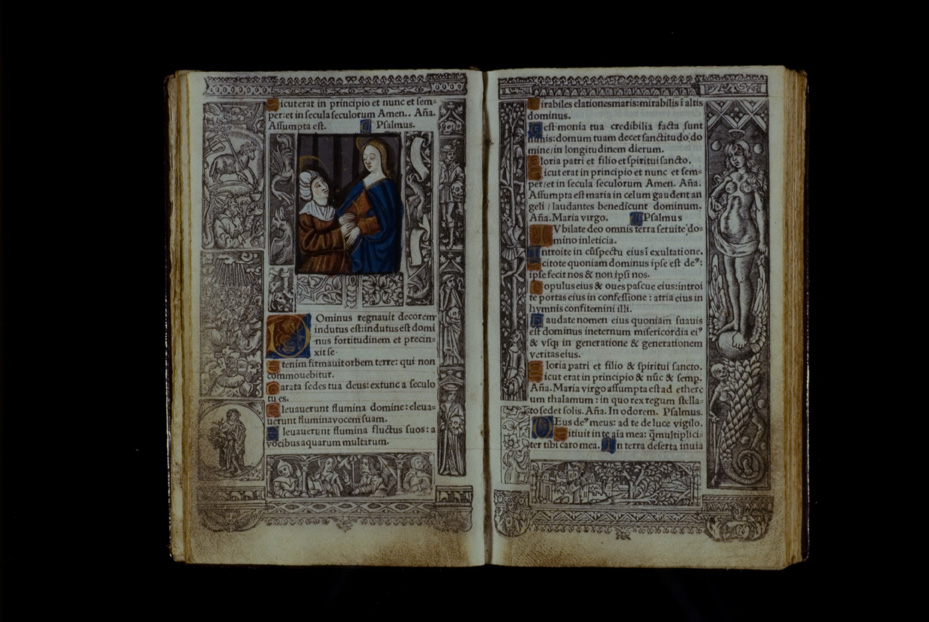 Sicut erat in principio et nunc et sem-
per: et in secula seculorum Amen.. Aña.
Assumpta est. Psalmus.
Dominus regnauit decorem
indutus est: indutus est domi
nus fortitudinem et precin-
xit se.
Etenim firmauit orbem terre: qui non
commouebitur.
Parata sedes tua deus: ex tunc a seculo
tu es.
Eleuauerunt flumina domine: eleua-
uerunt flumina vocem suam.
Eleuauerunt flumina fluctus suos: a
vocibus aquarum multarum.
Mirabiles elationes maris: mirabilis ī altis
dominus.
Testimonia tua credibilia facta sunt
nimis: domum tuam decet sanctitudo do
mine/in longitudinem dierum.
Gloria patri et filio et spiritui sancto.
Sicut erat in principio et nunc et sem-
per: et in secula seculorum Amen. Aña.
Assumpta est maria in celum gaudent an
geli / laudantes benedicunt dominum.
Aña. Maria virgo. Psalmus
IVbilate deo omnis terra seruite do-
mino in leticia.
Introite in cōspectu eius ī exultatione.
Scitote quoniam dominus ipse est de⁹:
ipse fecit nos & non ipsi nos.
Populus eius & oues pascue eius: introi
te portas eius in confessione : atria eius in
hymnis confitemini illi.
Laudate nomen eius quoniam suauis
est dominus in eternum misericordia ei⁹
& vsq̄ in generatione & generationem
veritas eius.
Gloria patri et filio & spiritui sancto.
Sicut erat in principio & nūc & semp.
Aña. Maria virgo assumpta est ad ethere
um thalamum : in quo rex regum stella-
to sedet solis. Aña. In odorem. Psalmus.
DEus de⁹ meus: ad te de luce vigilo.
Sitiuit in te aīa mea: q̄ multiplici-
ter tibi caro mea. In terra deserta inuia